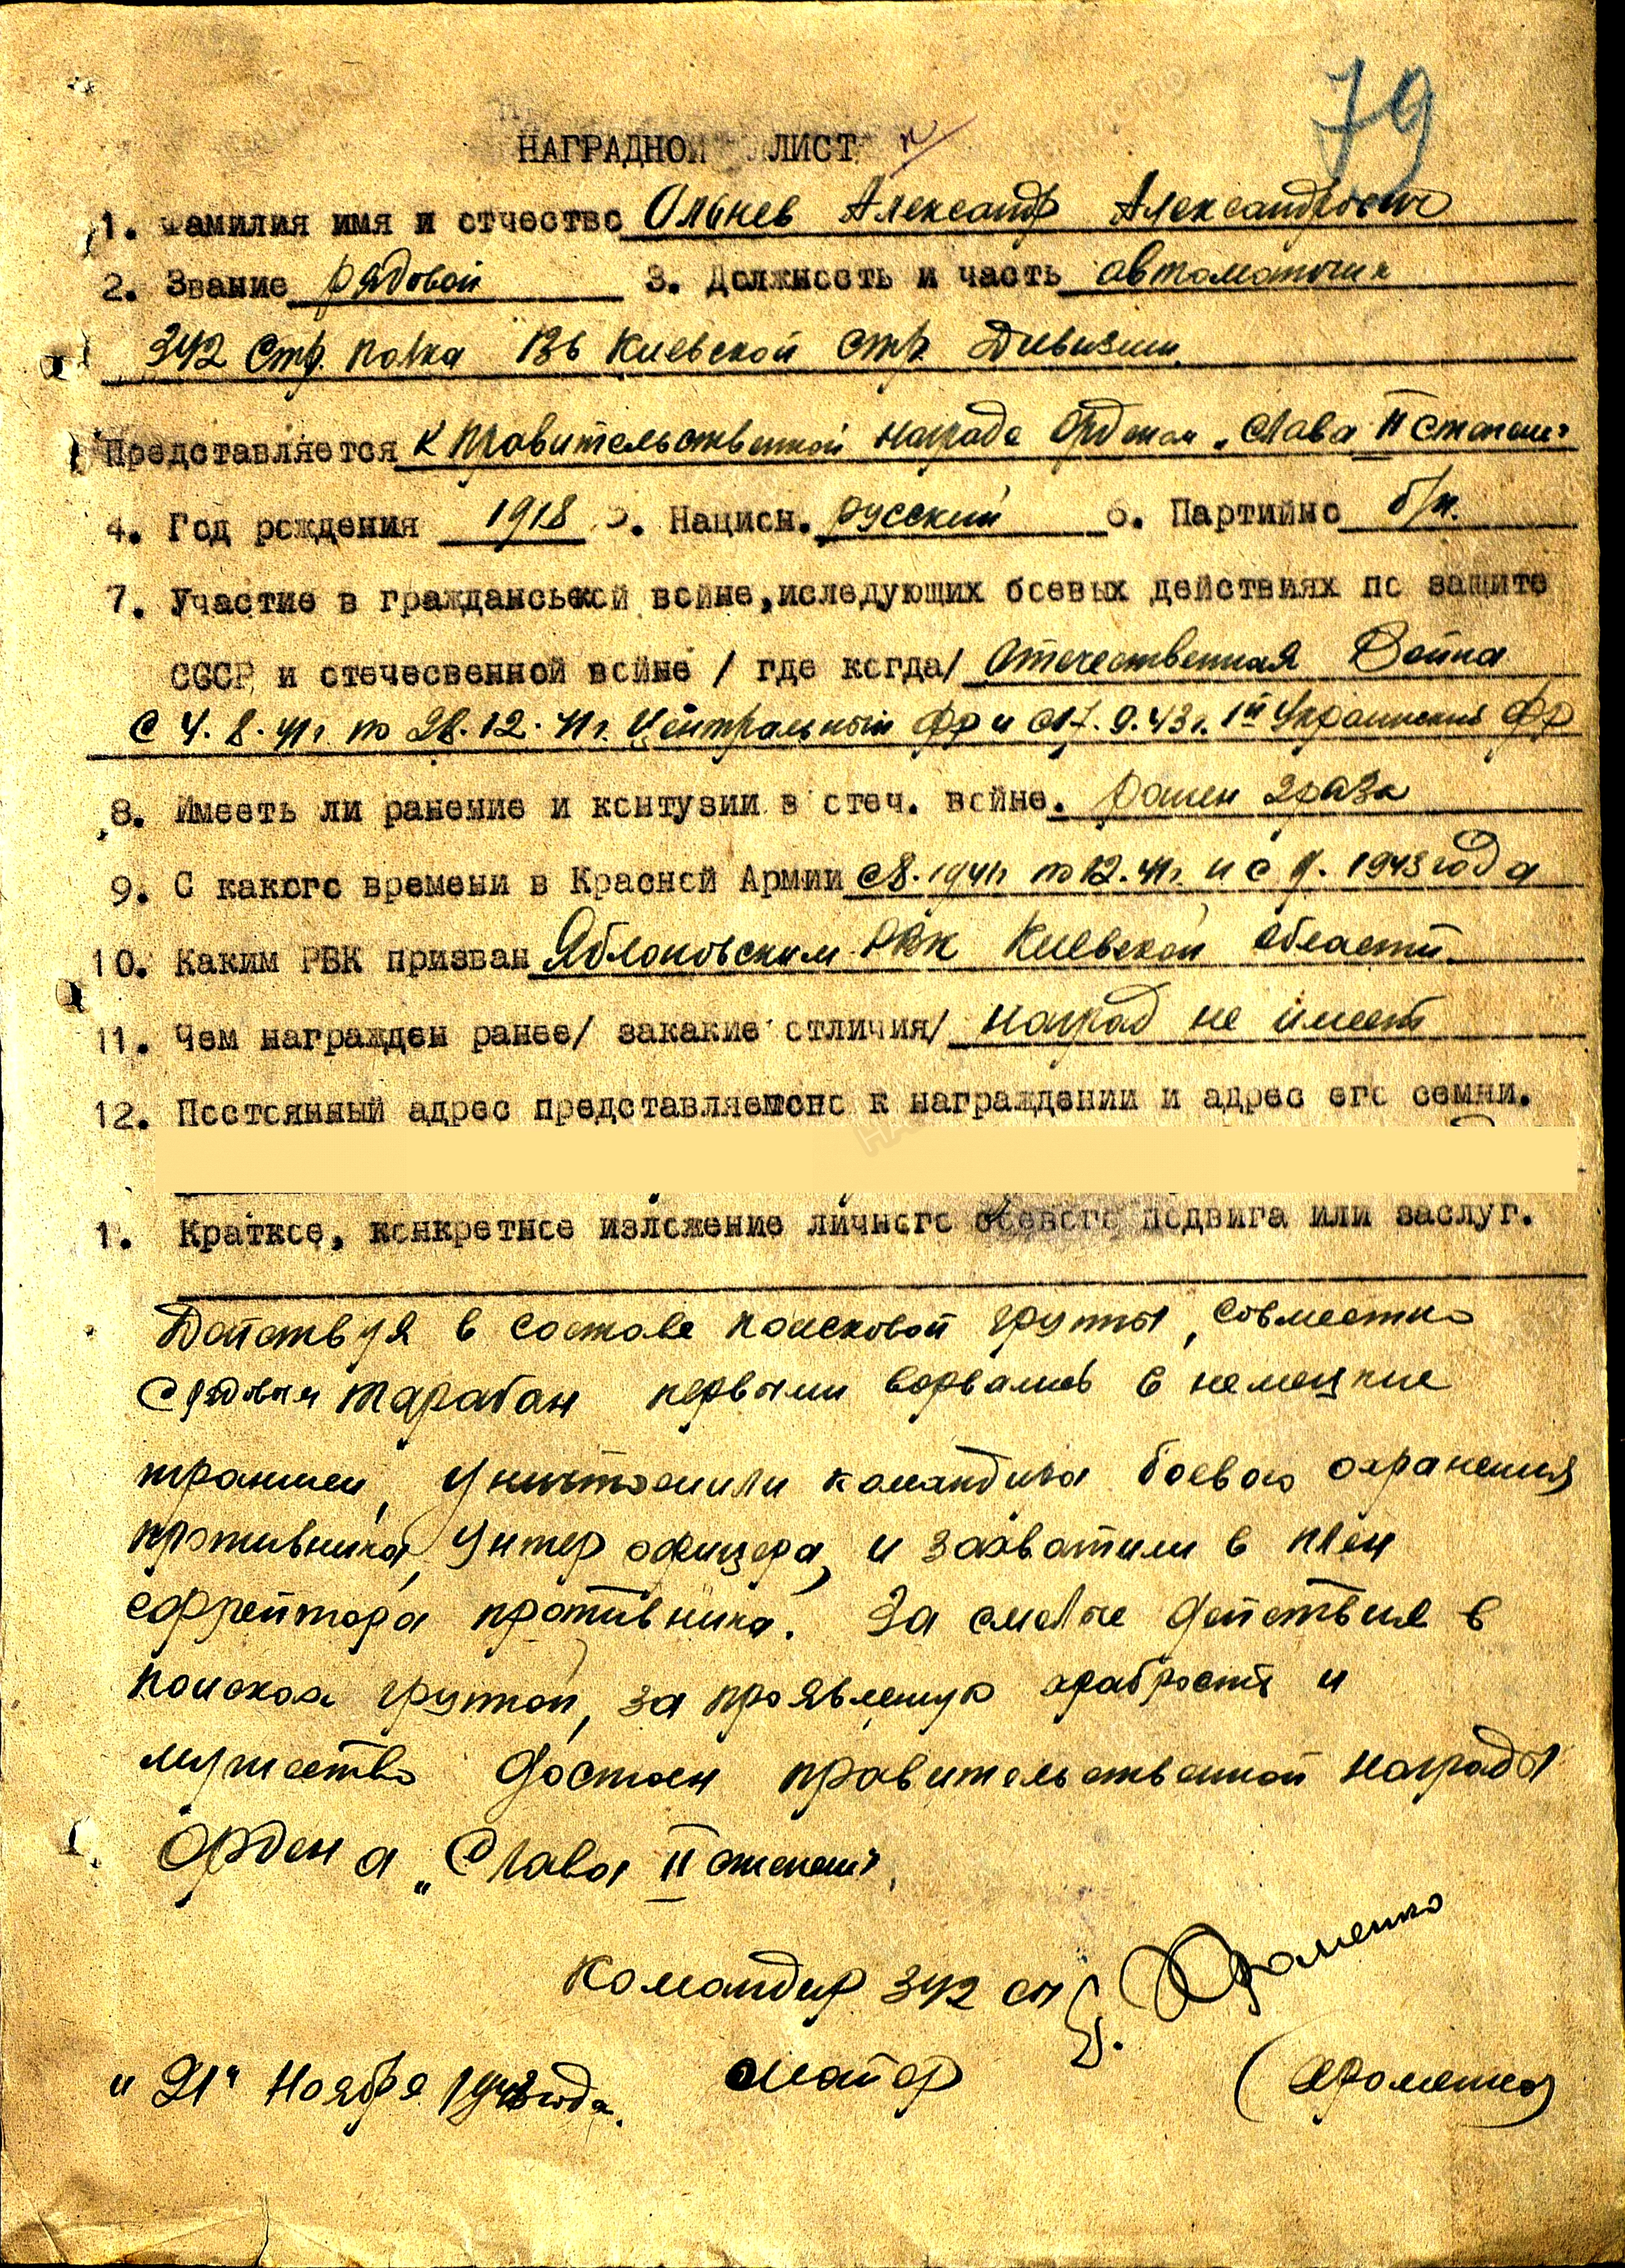 79
НАГРАДНОЙ ЛИСТ
1. Фамилия имя и отчество Олынев Александр Александрович
2. Звание рядовой 3. Должность и часть автоматчик
342 Стр. полка 136 Киевской Стр. Дивизии.
Представляется к правительственной награде Орденом „Слава II Степени"
4. Год рождения 1918 5. Национ. русский 6. Партийно б/п.
7. Участие в гражданськой войне, иследующих боевых действиях по защите
СССР и отечесвенной войне / где когда/ Отечественная Война
с 4.8.41г по 28.12.41г. Центральный фр и с 17.9.43г. 1й Украинский фр
8. Имееть ли ранение и контузии в отеч. войне. ранен 2 раза
9. С какого времени в Красной Армии с 8.1941г по 12.41г. и с 9.1943 года
10. Каким РВК призван Яблоновским РВК Киевской области.
11. Чем награжден ранее/ закакие отличия/ наград не имеет
12. Постоянный адрес представляемоно к награждении и адрес его семни.
1. Краткое, конкретное изложение личного боевого подвига или заслуг.
Действуя в составе поисковой группы, совместно
с рядовым Тарабан первыми ворвались в немецкие
траншеи, уничтожили командира боевого охранения
противника, унтер офицера, и захватили в плен
ефрейтора противника. За смелые действия в
поисках группой, за проявленую храбрость и
мужество достоен правительственной награды
Ордена „Слава II степени".
Командир 342 сп Е. Хроменко
майор (Хроменко)
„21" Ноября 1943 года.